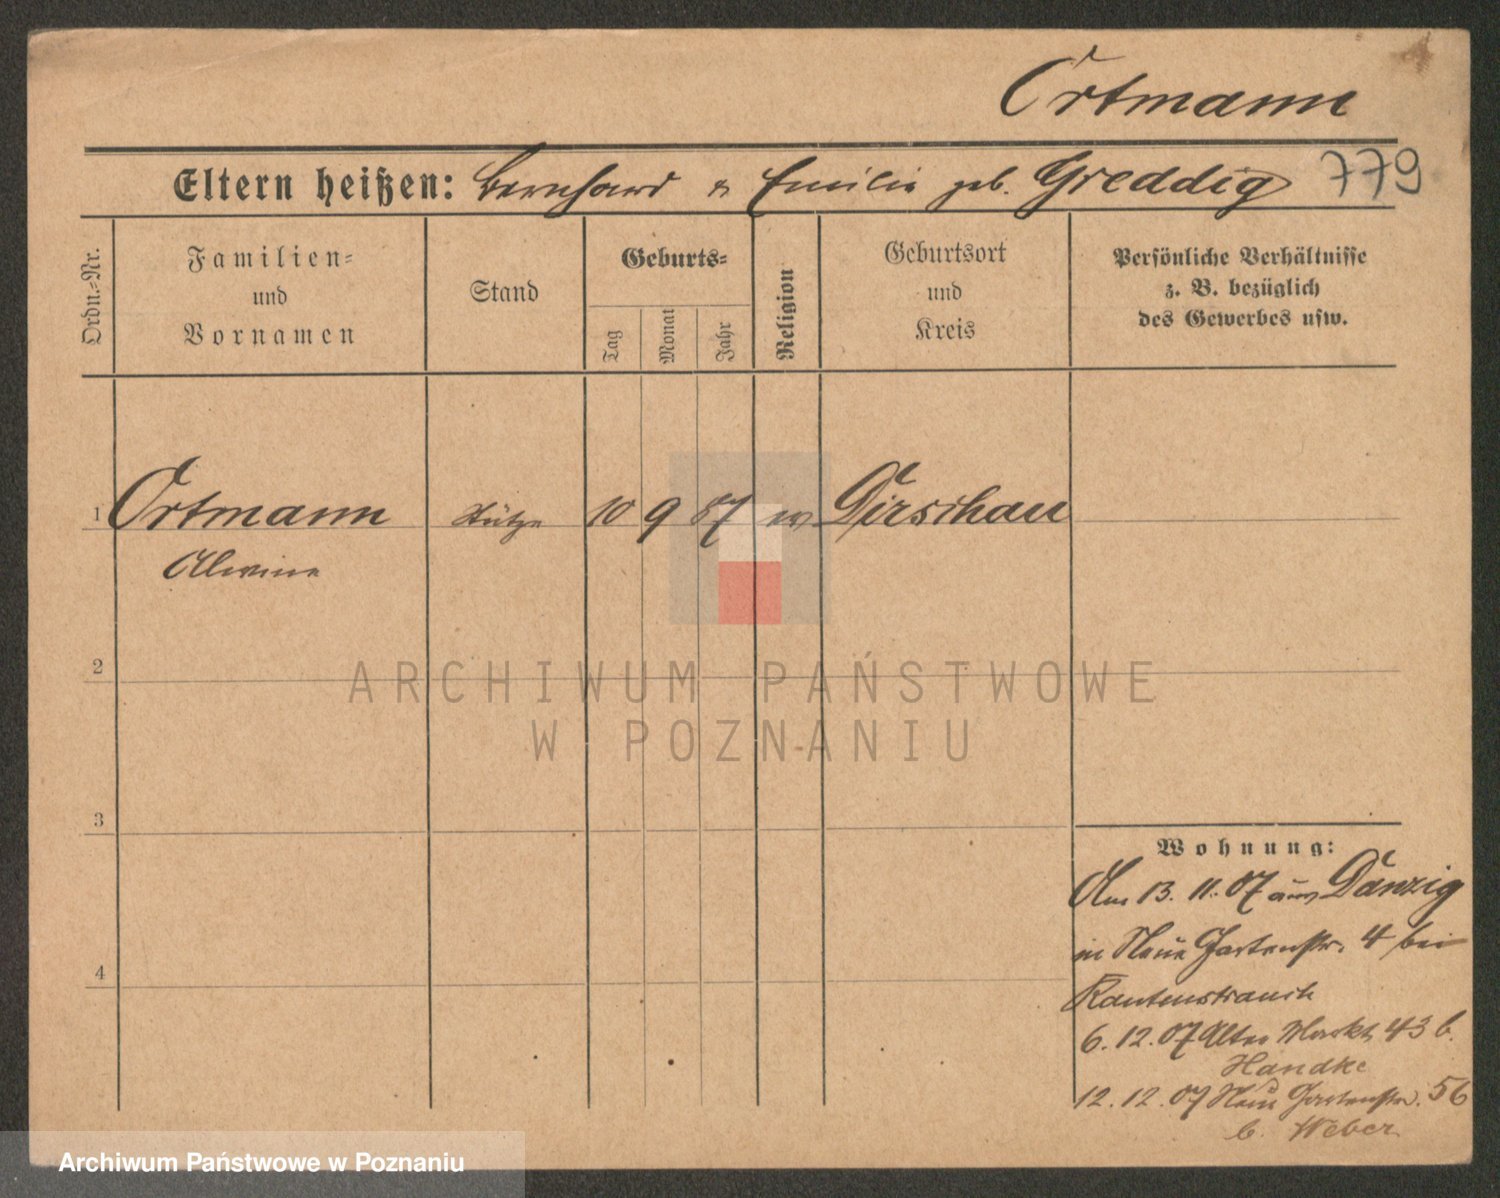 Ortmann
Eltern heißen: Bernhard u Emilie geb. Greddig 779
Ordn.=Nr.
Familien=
und
Vornamen
Stand
Geburts=
Tag
Monat
Jahr
Religion
Geburtsort
und
Kreis
Persönliche Verhältnisse
z. B. bezüglich
des Gewerbes usw.
1 Ortmann Stütze 10 9 87 ev Dirschau
Alwine
2
ARCHIWUM PAŃSTWOWE
W POZNANIU
3
Wohnung:
Am 13. 11. 07 aus Danzig
in Neue Gartenstr. 4 bei
Rautenstrauch
4
6. 12. 07 Alter Markt 43 b.
Handke
12. 12. 07 Neue Gartenstr. 56
b. Weber
Archiwum Państwowe w Poznaniu